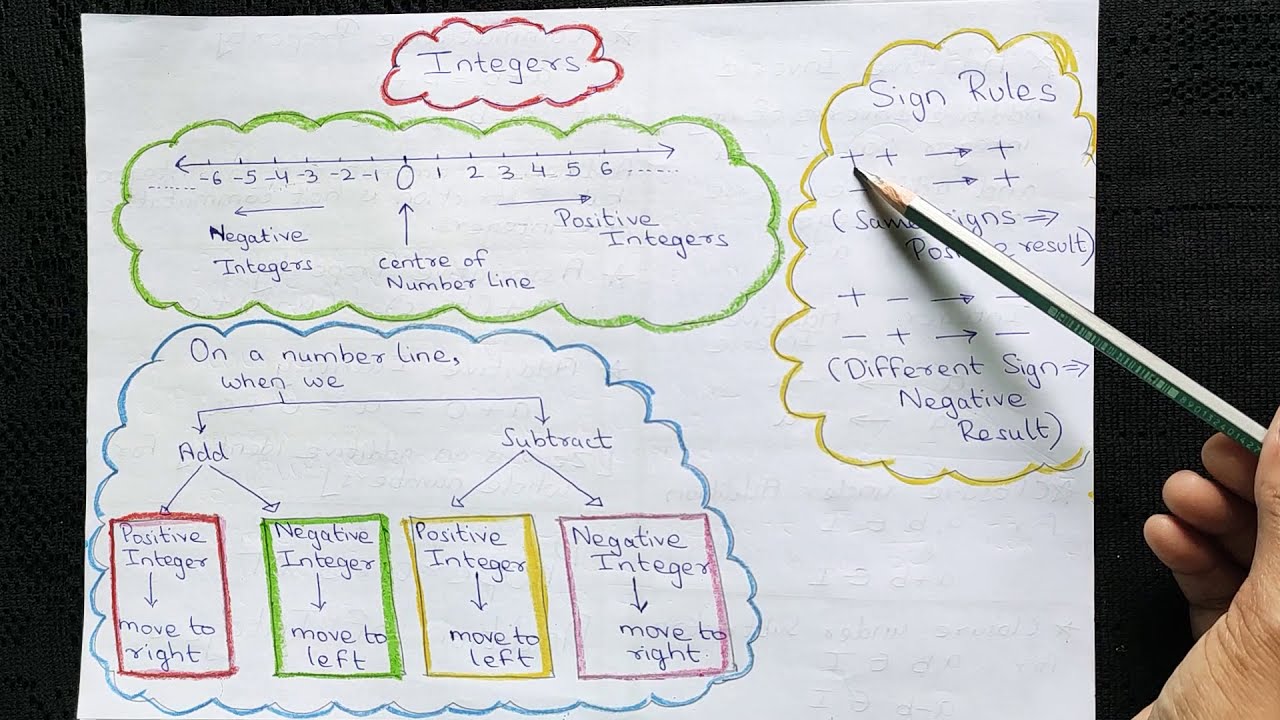 Integers
-6 -5 -4 -3 -2 -1 0 1 2 3 4 5 6 ......
Negative
Integers
centre of
Number Line
Positive
Integers
On a number line,
when we
Add
Subtract
Positive
Integer
move to
right
Negative
Integer
move to
left
Positive
Integer
move to
left
Negative
Integer
move to
right
Sign Rules
+ + → +
− → +
(Same signs ⇒
Positive result)
+ − → −
− + → −
(Different Sign ⇒
Negative
Result)